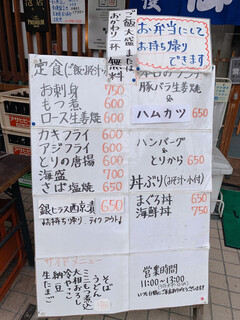 ご飯大盛または
おかわり一杯 無料
お弁当にして
お持ち帰り
できます
定食(ご飯・みそ汁・
お刺身 750
もつ煮 600
ロース生姜焼 600
カキフライ 600
アジフライ 600
とりの唐揚 600
海鮮 700
さば塩焼 650
銀ヒラス西京漬 650
本日のランチ
豚バラ生姜焼
&
ハムカツ 650
ハンバーグ
&
とりから 650
丼ぶり(みそ汁・小付)
まぐろ丼 650
海鮮丼 750
サイドメニュー
そば
うどん
ミニもつ煮込
大根おろし
冷やっこ
納豆
生たまご
営業時間
11:00〜13:30